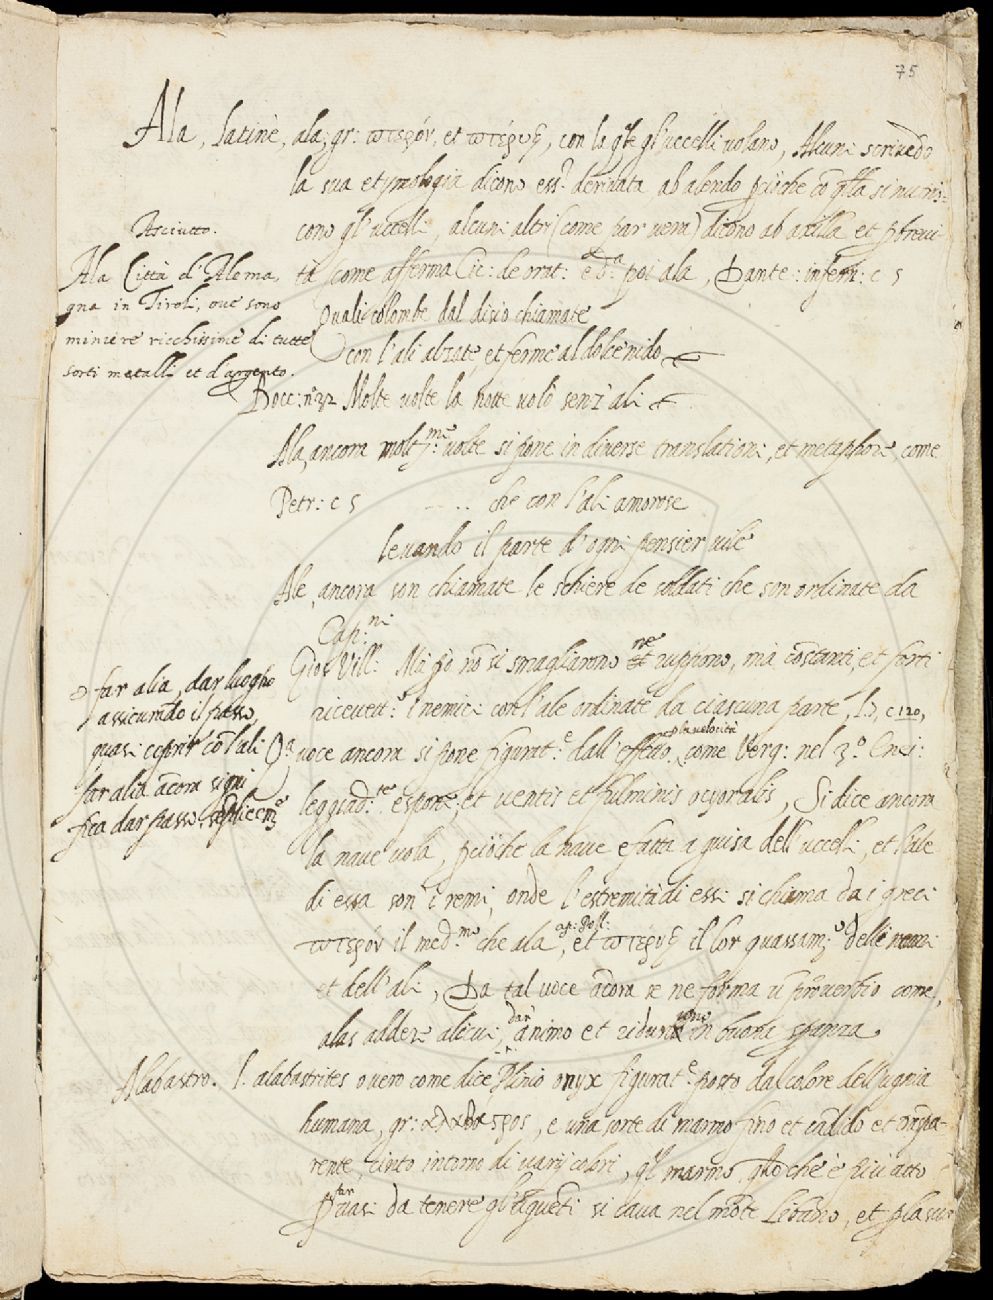 75
Ala, latinè, ala; gr: πτερόν, et πτέρυξ, con la qle gl'uccelli volano, Alcuni scrivedo
la sua etymologia dicono essr derivata ab alendo pcioche cō qlla si nutris-
cono gl'uccelli, alcuni altri (come par vera) dicono ab axilla et p brevi-
tà come afferma Cic: de orat: è da poi ala, Dante: infern: c 5
Quali colombe dal disio chiamate
con l'ali alzate et ferme al dolce nido
Bocc: n 32 Molte volte la notte volò senz'ali
Ala, ancora moltme volte si pone in diverse translationi, et metaphore, come
Petr: c 5 ..... che con l'ali amorose
levando il parte d'ogni pensier vile
Ale, ancora son chiamate le schiere de soldati che son ordinate da
Cap:ni
Gio: Vill: Mà pò nō si smagliarono ne ruppono, mà costanti, et forti
ricevettr i nemici con l'ale ordinate da ciascuna parte, l. 7, c 120,
Qa voce ancora si pone figurate dall'effetto, p la velocità come Verg: nel 3o Enei:
leggiadte espone, et ventis et fulminis ocyor alis, Si dice ancora
la nave vola, pcioche la nave è fatta a guisa dell'uccelli, et l'ale
di essa son i remi, onde l'estremità di essi si chiama da i greci
πτερόν il medmo che ala, ap: Poll: et πτέρυξ il lor quassamo delli remi
et dell'ali, Da tal voce ācora se ne forma ū proverbio come,
alas addere alicui, dar animo et in buona spāza
Alabastro. l. alabastrites overo come dice Plinio onyx figurate posto dal colore dell'ugnia
humana, gr: αλαβαστρος, e una sorte di marmo fino et cādido et traspa-
rente, cinto intorno di varij colori, ql marmo che è piu atto
far vasi da tenere gl'ūgueti si cava nel mōte Lebano, et p la su-
Asciutto.
Ala Città d'Alema,
gna in Tiroli, ove sono
miniere ricchissime di tutte
sorti metalli et d'argento.
far alia, dar luogho
assicurādo il passo,
quasi coprir cō l'ali
far alia ācora signi
fica dar passo, semplicemo